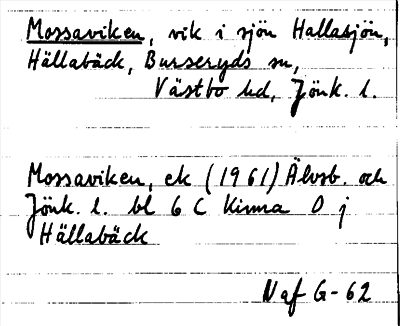 Mossaviken, vik i sjön Hallasjön,
Hällabäck, Burseryds sn,
Västbo hd, Jönk. l.
Mossaviken, ek (1961) Älvsb. och
Jönk. l. bl 6 C Kinna 0 j
Hällabäck
Naf G-62